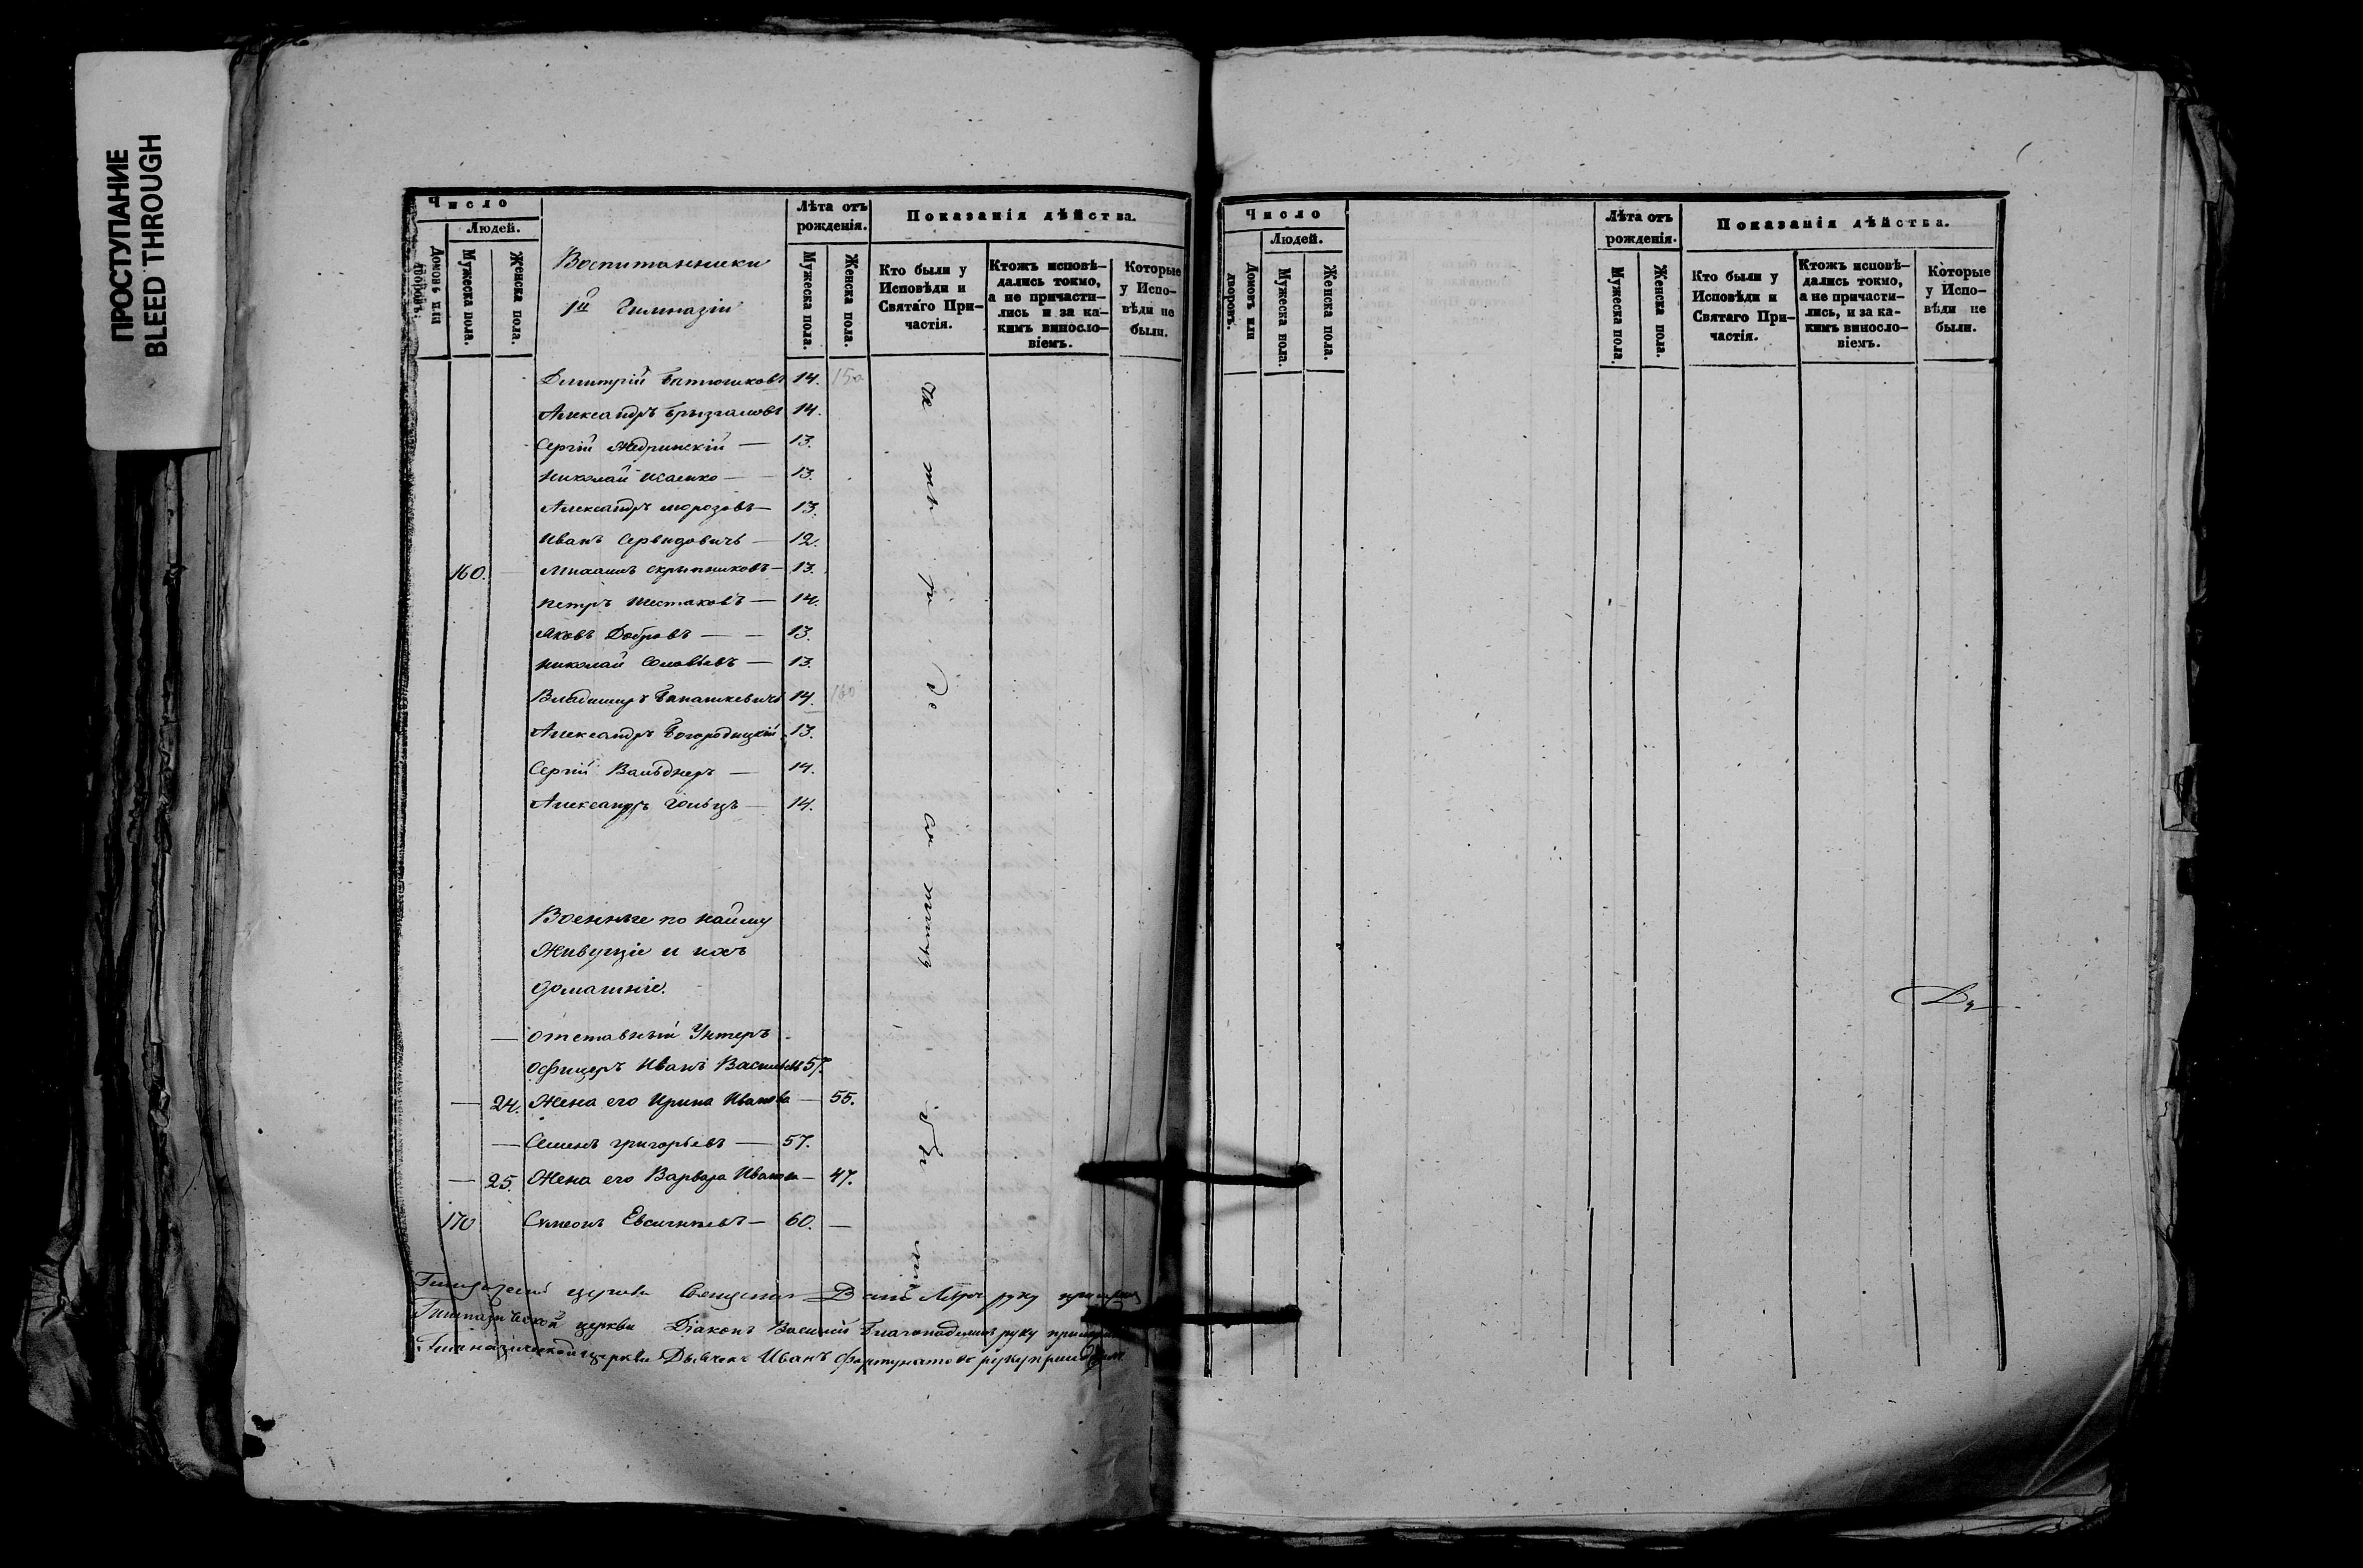 ПРОСТУПАНИЕ
BLEED THROUGH
Число
Людей.
Домовъ или дворовъ.
Мужеска пола.
Женска пола.
Воспитанники
1й Гимназіи
Лѣта отъ рожденія.
Мужеска пола.
Женска пола.
Показанія дѣйства.
Кто были у Исповѣди и Святаго Причастія.
Ктожъ исповѣдались токмо, а не причастились и за какимъ винословіемъ.
Которые у Исповѣди не были.
Димитрій Батюшковъ 14. 150
Александръ Брызгаловъ 14.
Сергій Жедринскій — 13.
Николай Исаенко — 13.
Александръ Морозовъ — 13.
Иванъ — 12.
160. Михаилъ Скрыпниковъ — 13.
Петръ Шестаковъ — 14.
Яковъ Добровъ — — 13.
Николай Соловьевъ — 13.
Владимиръ 14. 160
Александръ Богородицкій 13.
Сергій — 14.
Александръ Гольцъ — 14.
Военные по найму
Живущіе и ихъ
домашніе.
— Отставный Унтеръ
офицеръ Иванъ Васильевъ 57.
— 24. Жена его Ирина Иванова — 55.
— Семенъ Григорьевъ — 57.
— 25. Жена его Варвара Иванова — 47.
170 Симеонъ Евсигнѣевъ — 60. —
церкви руку
Гимназической церкви Діаконъ Василій руку
Гимназической церкви Дьячекъ Иванъ Фортунатовъ руку приложилъ
Число
Людей.
Домовъ или дворовъ.
Мужеска пола.
Женска пола.
Лѣта отъ рожденія.
Мужеска пола.
Женска пола.
Показанія дѣйства.
Кто были у Исповѣди и Святаго Причастія.
Ктожъ исповѣдались токмо, а не причастились, и за какимъ винословіемъ.
Которые у Исповѣди не были.